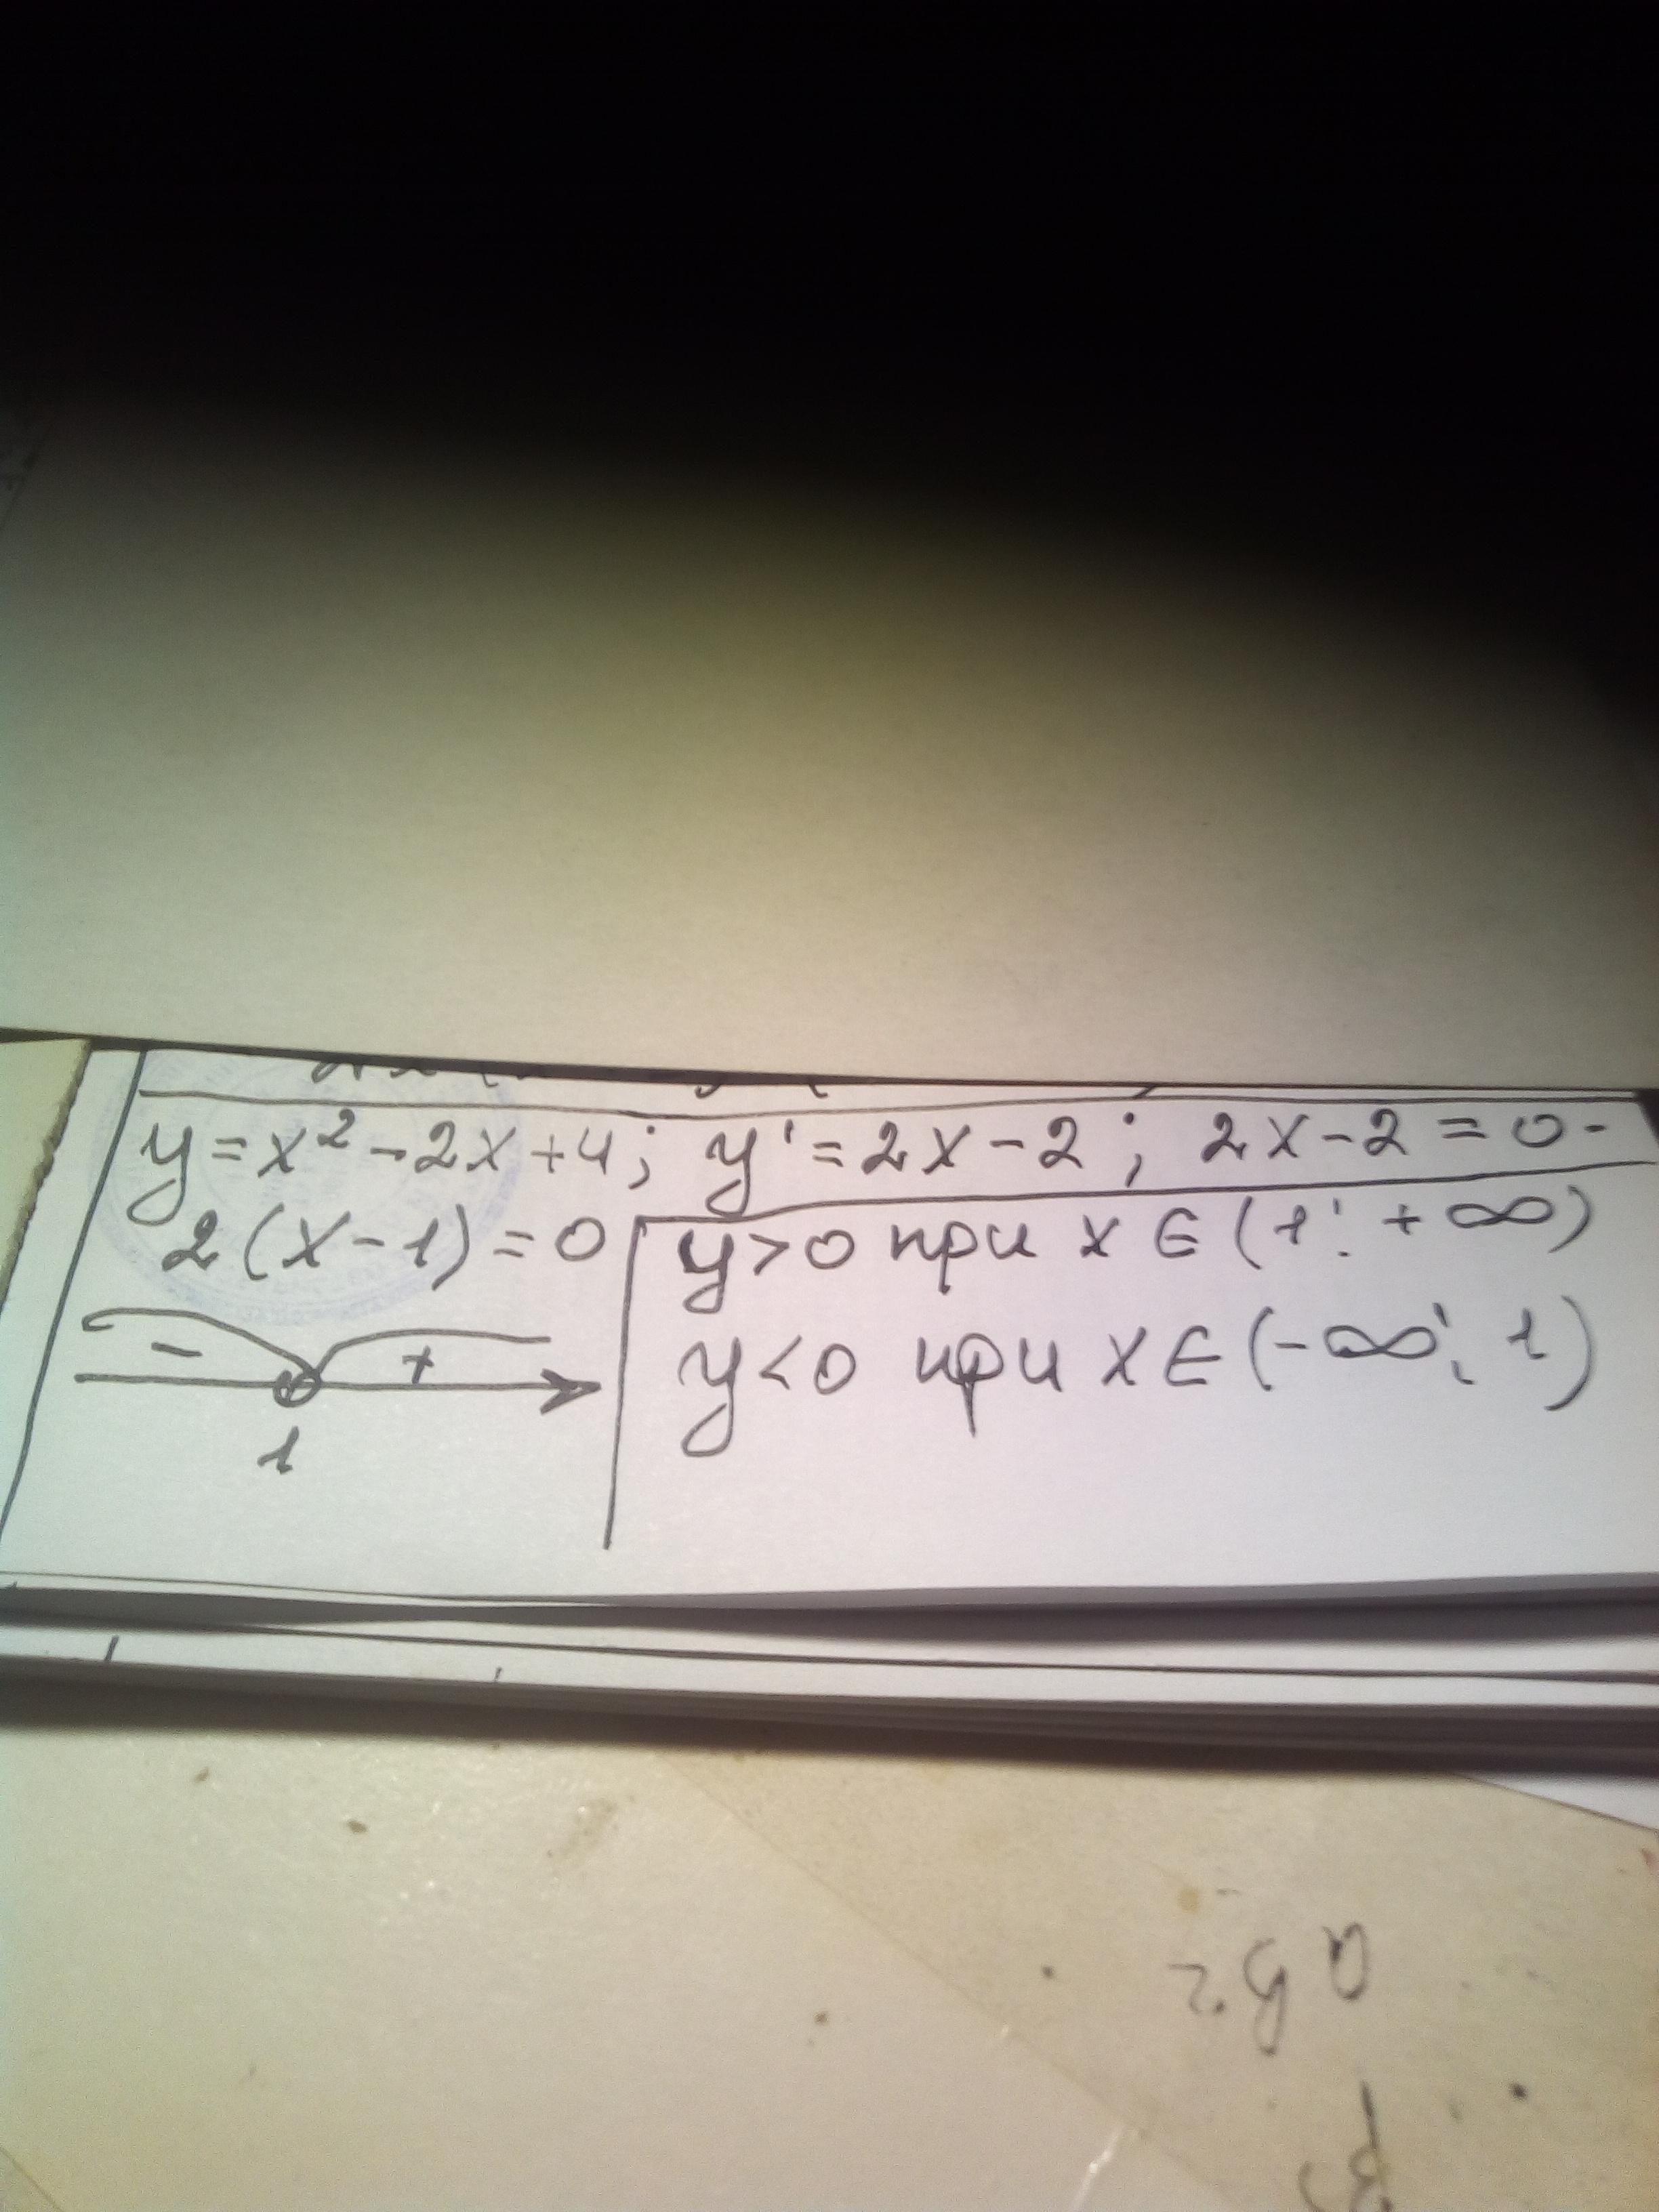 y = x² - 2x + 4; y' = 2x - 2; 2x - 2 = 0.
2(x - 1) = 0
y > 0 при x ∈ (1; + ∞)
- +
y < 0 при x ∈ (-∞; 1)
1